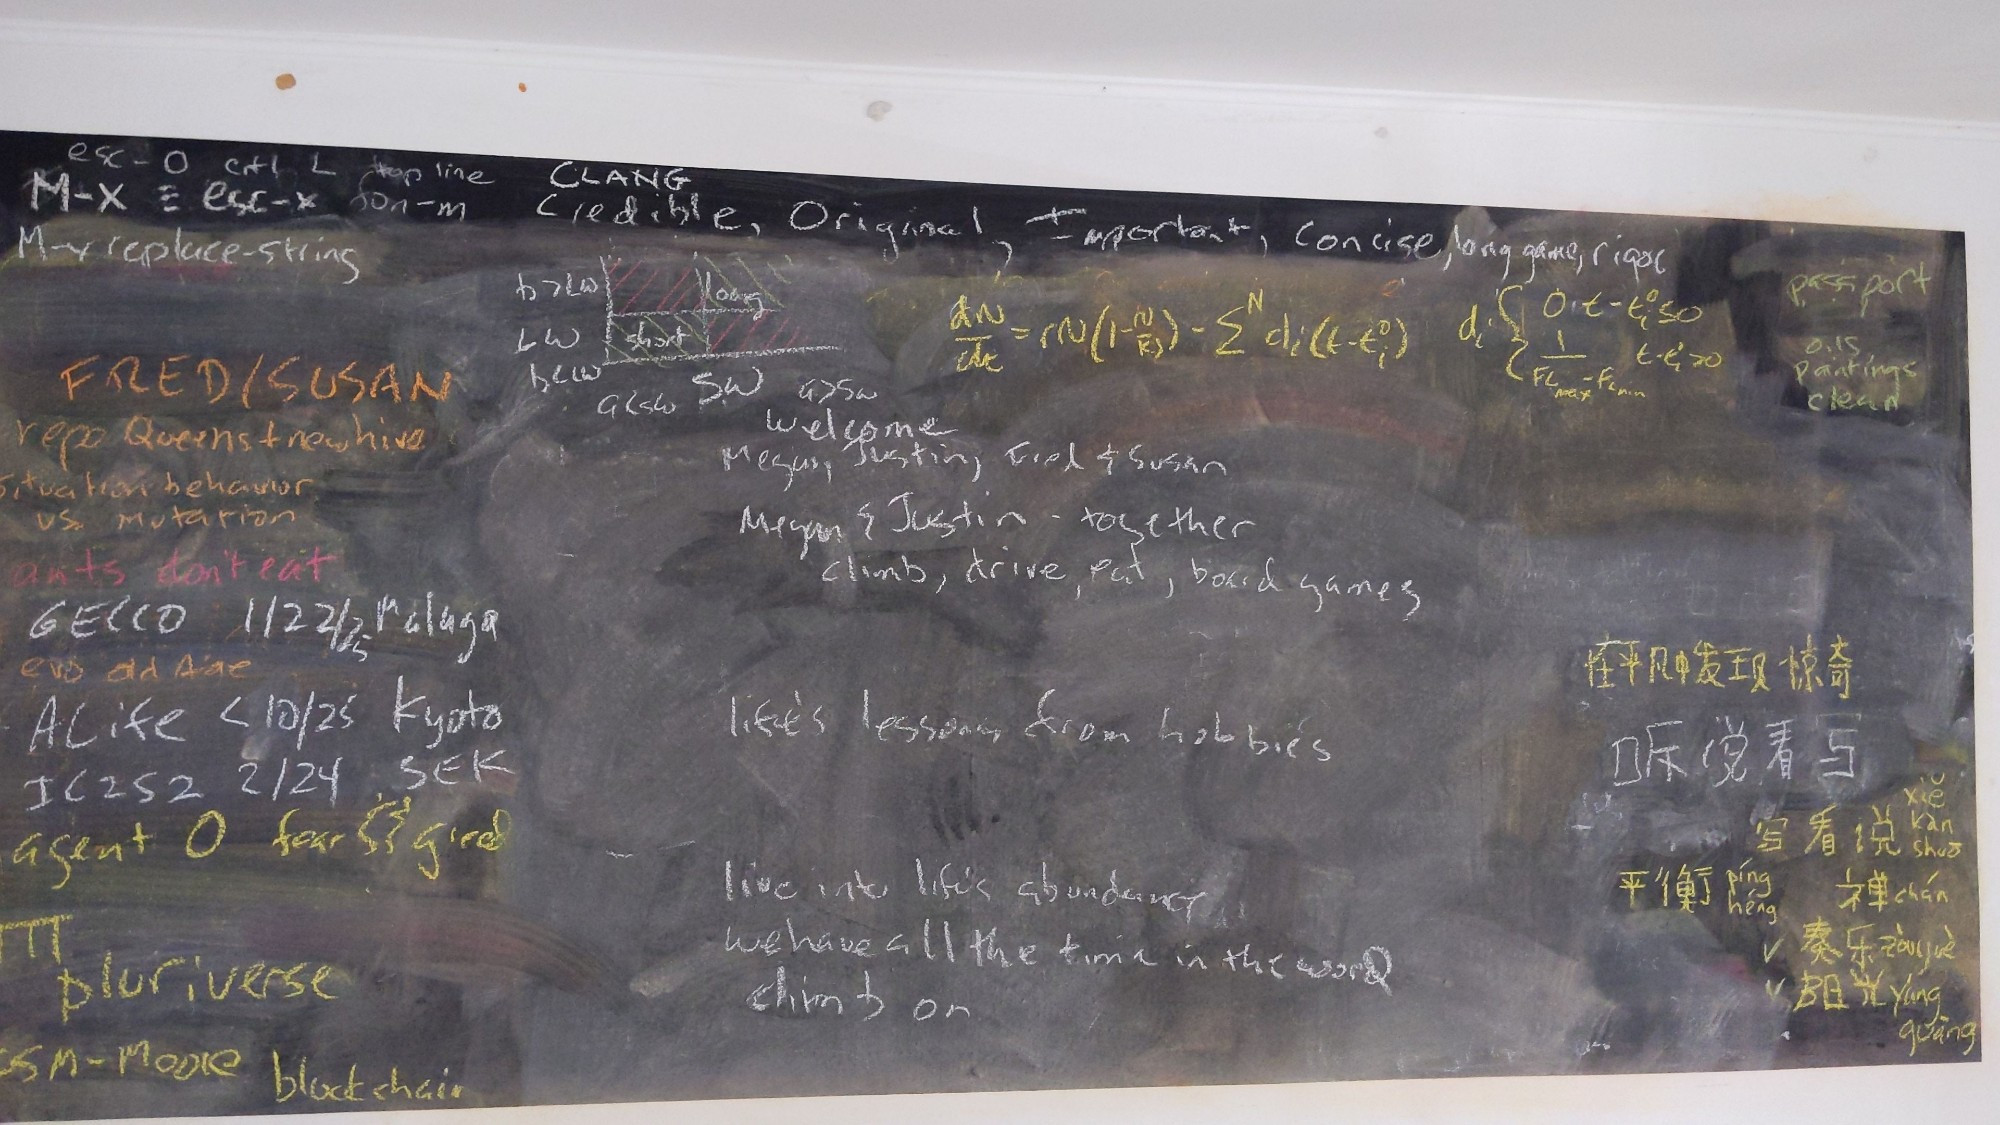 esc-O ctrl L top line
M-X ≡ esc-x fon-m
M-x replace-string
CLANG
Credible, Original, Important, Concise, long game, rigor
b>LW long
LW short
b<LW
a<SW SW a>SW
dN/dt = rN(1-N/Ks) - Σ^N di(t-ti^0)
di { 0 t-ti^0≤0
1/(FLmax-FLmin) t-ti^0>0
passport
oils
paintings
clean
FRED/SUSAN
repo Queens + new hive
situation behavior
vs. mutation
ants don't eat
GECCO 1/22/25 Malaga
evo old Age
ALife <10/25 Kyoto
IC2S2 2/24 SEK
agent 0 fear & greed
pluriverse
GSM-Moore blockchain
welcome
Megan, Justin, Fred & Susan
Megan & Justin - together
climb, drive, eat, board games
life's lessons from hobbies
live into life's abundancy
we have all the time in the world
climb on
在平凡中发现惊奇
听说看写
写看说 xiě kàn shuō
平衡 píng héng 禅 chán
v 奏乐 zòuyuè
v 阳光 yáng guāng